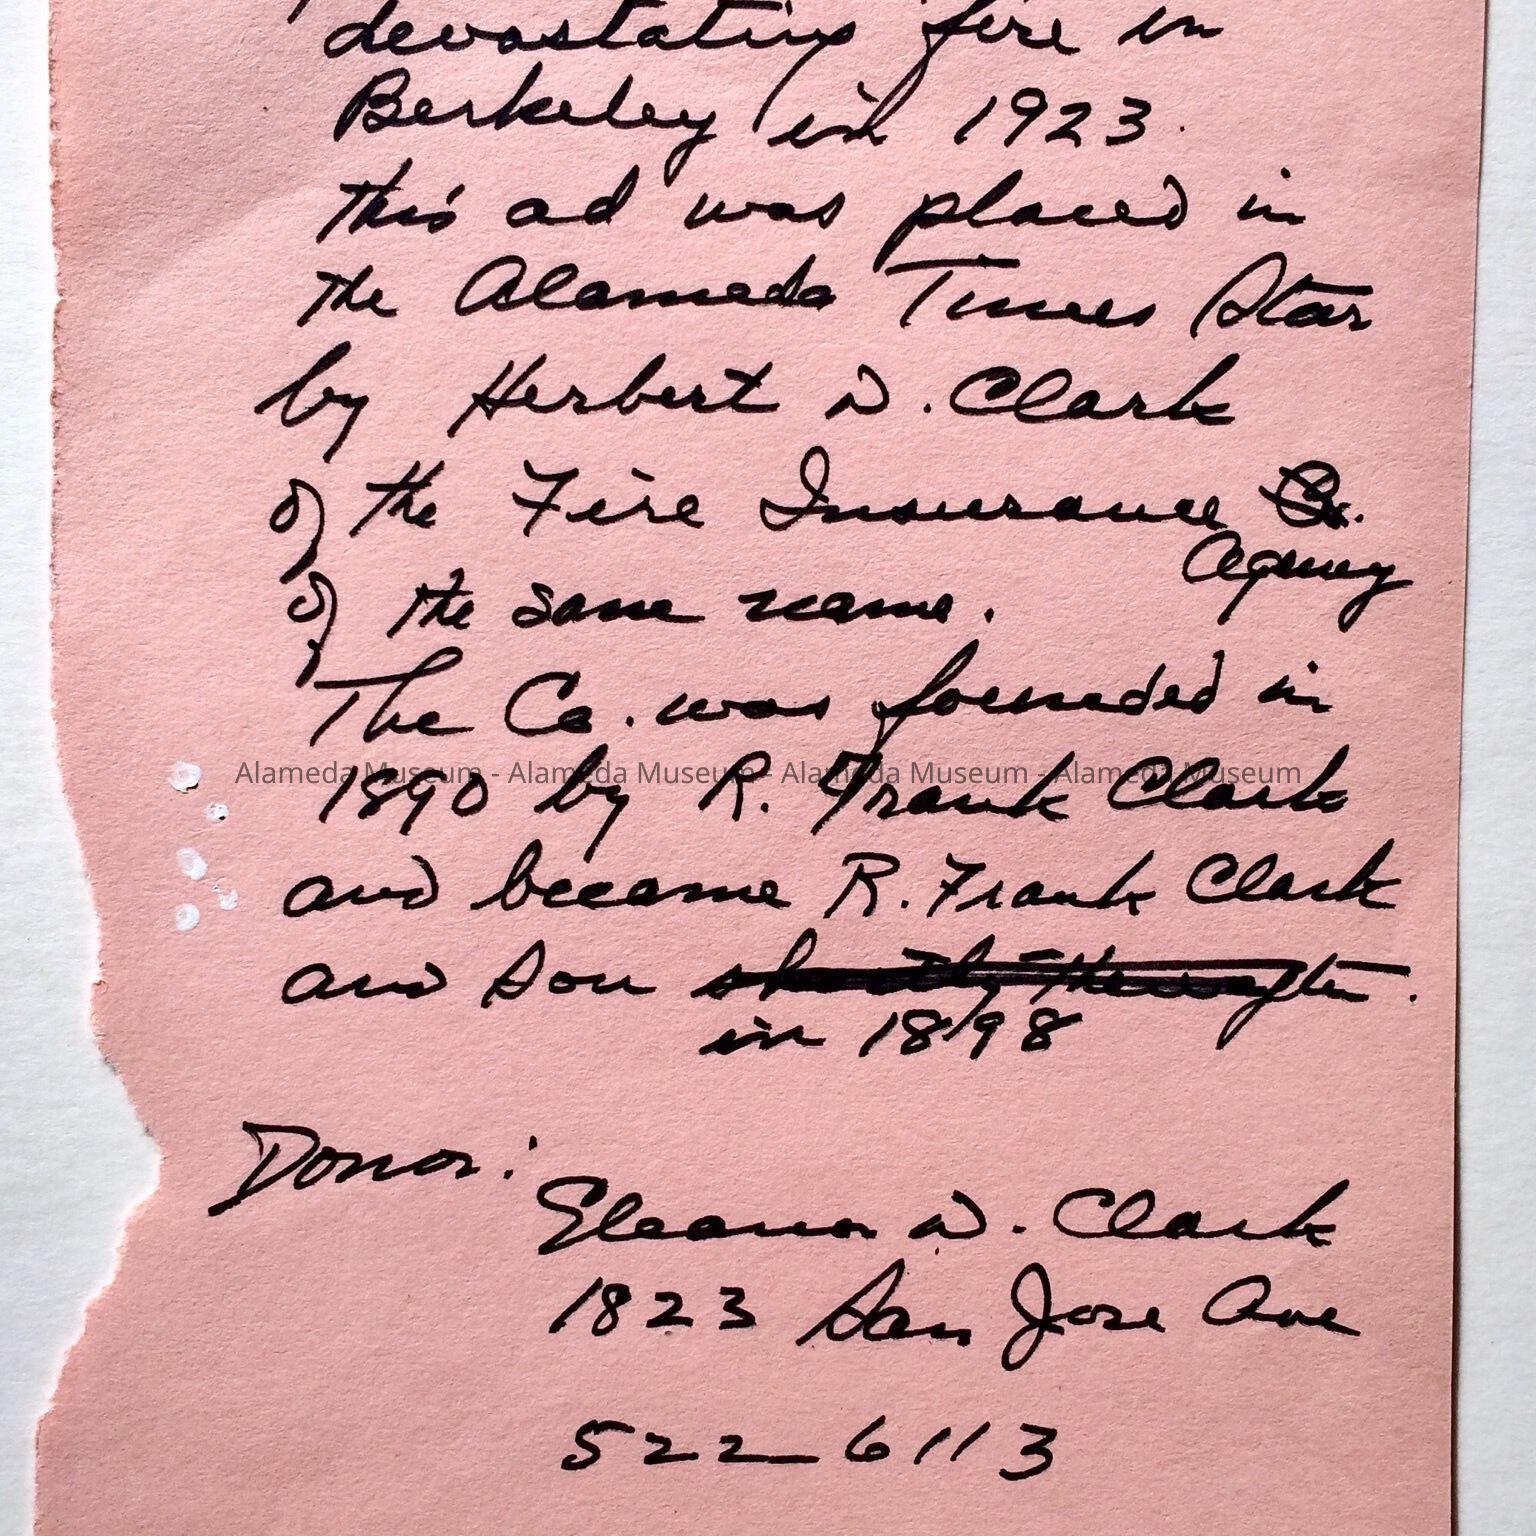 devastating fire in
Berkeley in 1923.
this ad was placed in
the Alameda Times Star
by Herbert W. Clark
of the Fire Insurance Co.
Agency
of the same name.
The Co. was founded in
Alameda Museum - Alameda Museum - Alameda Museum - Alameda Museum
1890 by R. Frank Clark
and became R. Frank Clark
and Son shortly thereafter.
in 1898
Donor:
Eleanor W. Clark
1823 San Jose Ave
522-6113